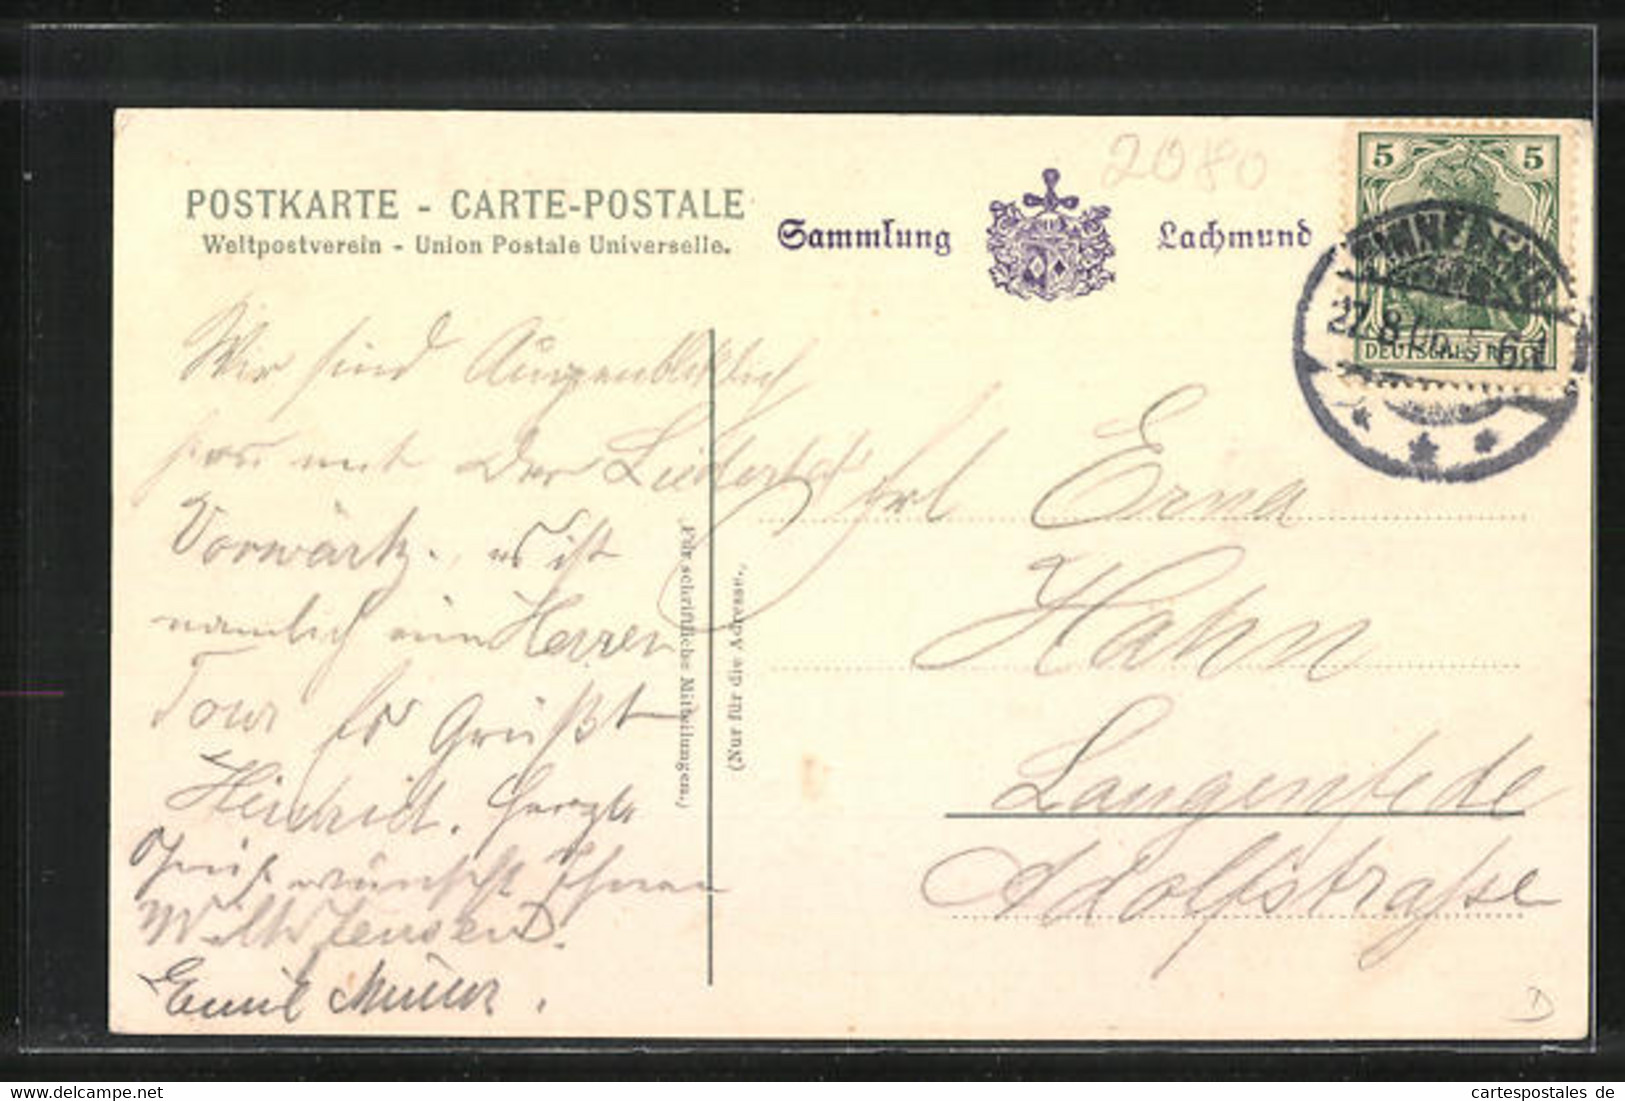 2080
POSTKARTE - CARTE-POSTALE
Weltpostverein - Union Postale Universelle.
Sammlung Lachmund
5 5
DEUTSCHES REICH
PINNEBERG
27.8.06. 5-6N.
Wir sind Augenblicklich
mit der Liedertafel
Vorwärts. es ist
nämlich eine Herren
Tour Es Grüßt
Heinrich. Herzl.
Gruß wünscht Ihnen
Wilh Jensen.
Emil Müller.
Für schriftliche Mitteilungen.)
(Nur für die Adresse.,
Frl Erna
Hahn
Langenfelde
Adolfstraße
D
cartespostales de